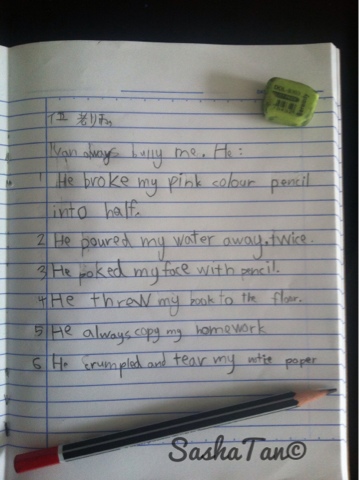 Ivan always bully me. He:
1 He broke my pink colour pencil
into half.
2 He poured my water away, twice.
3 He poked my face with pencil.
4 He threw my book to the floor.
5 He always copy my homework
6 He crumpled and tear my note paper
SashaTan©